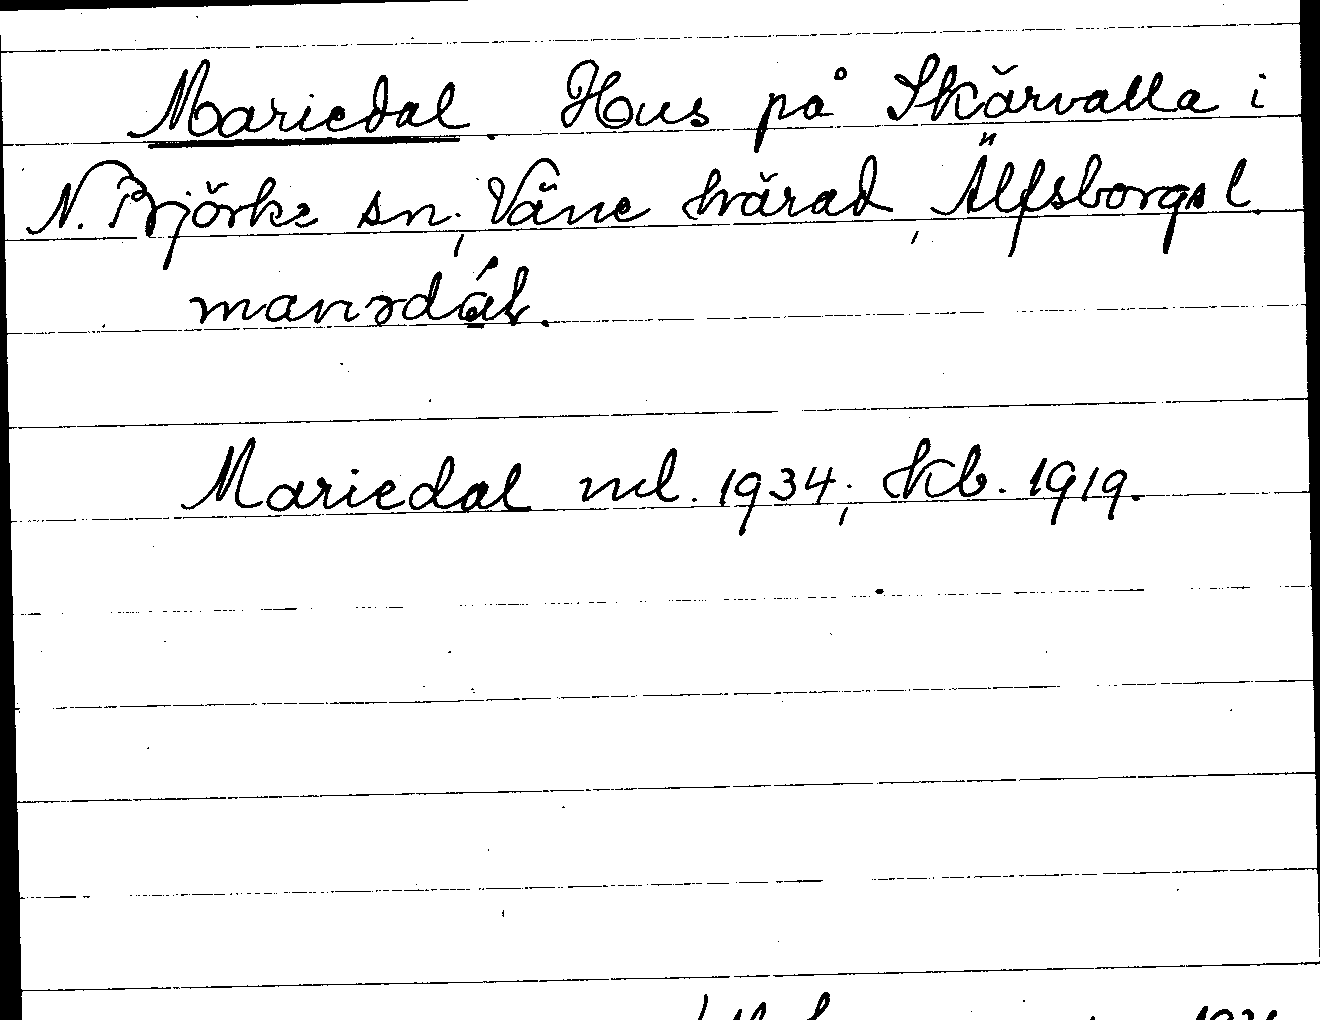 Mariedal. Hus på Skärvalla i
N. Björke sn, Väne härad, Älfsborgs l.
Mariedal ml. 1934; kb. 1919.